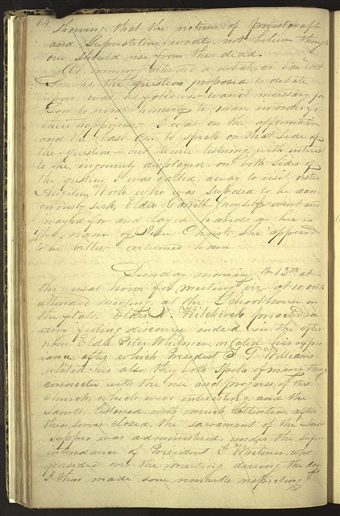 64 Showing that the victims of priestcraft
and Superstition would not believe though
one should rise from the dead.
At evening attended a debate at Far West
the question proposed to debate
upon was as follows. was it necessary for
to man in order to
I was on the affirmative
and the last one to speak on that side of
the question. While listening with interest
to the ingenuity displayed on both sides of
the question I was called away to visit Sister
who was supposed to be dan-
-gerously sick. Elder Corrill & myself went and
prayed for and layed hands on her in
the name of Jesus Christ. She appeared
to be better returned home
Sunday morning the 13th at
the usual hour for meeting viz. 10 o'clock
attended meeting at the Schoolhouse on
the flats. Elder J. Hitchcock preached a
very feeling discourse indeed in the after
noon Elder Peter Whitmer related his experi-
-ience after which President F. G. Williams
related his also they both spoke of many things
connected with the rise and progress of this
church which were interesting and the
Saints listened with much attention after
these were closed the sacrament of the Lords
Supper was administered under the sup-
-intendance of President D. Whitmer who
presided over the meeting during the day
I then made some remarks respecting